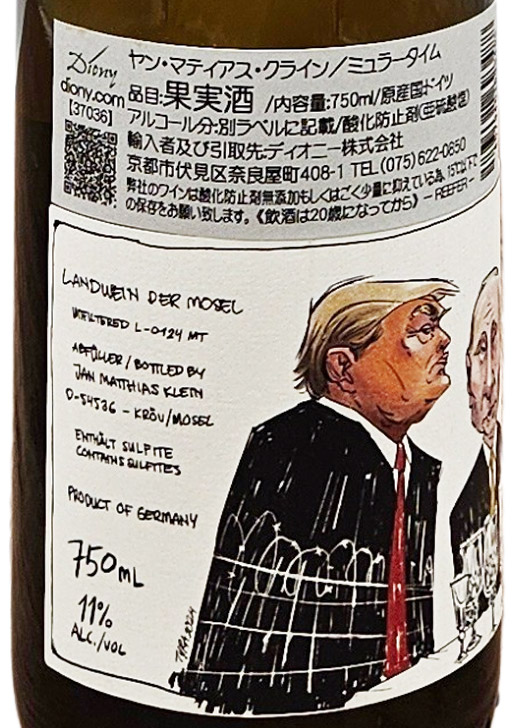 Diony
diony.com
[37036]
ヤン・マティアス・クライン／ミュラータイム
品目:果実酒 /内容量:750ml/原産国:ドイツ
アルコール分:別ラベルに記載/酸化防止剤(亜硫酸塩)
輸入者及び引取先:ディオニー株式会社
京都市伏見区奈良屋町408-1 TEL(075)622-0850
弊社のワインは酸化防止剤無添加もしくはごく少量に抑えている為、15℃以下で
の保存をお願い致します。《飲酒は20歳になってから》 — REEFER —
LANDWEIN DER MOSEL
UNFILTERED L-0124 MT
ABFÜLLER / BOTTLED BY
JAN MATTHIAS KLEIN
D-54536 - KRÖV/MOSEL
ENTHÄLT SULFITE
CONTAINS SULFITES
PRODUCT OF GERMANY
750mL
11%
ALC./VOL